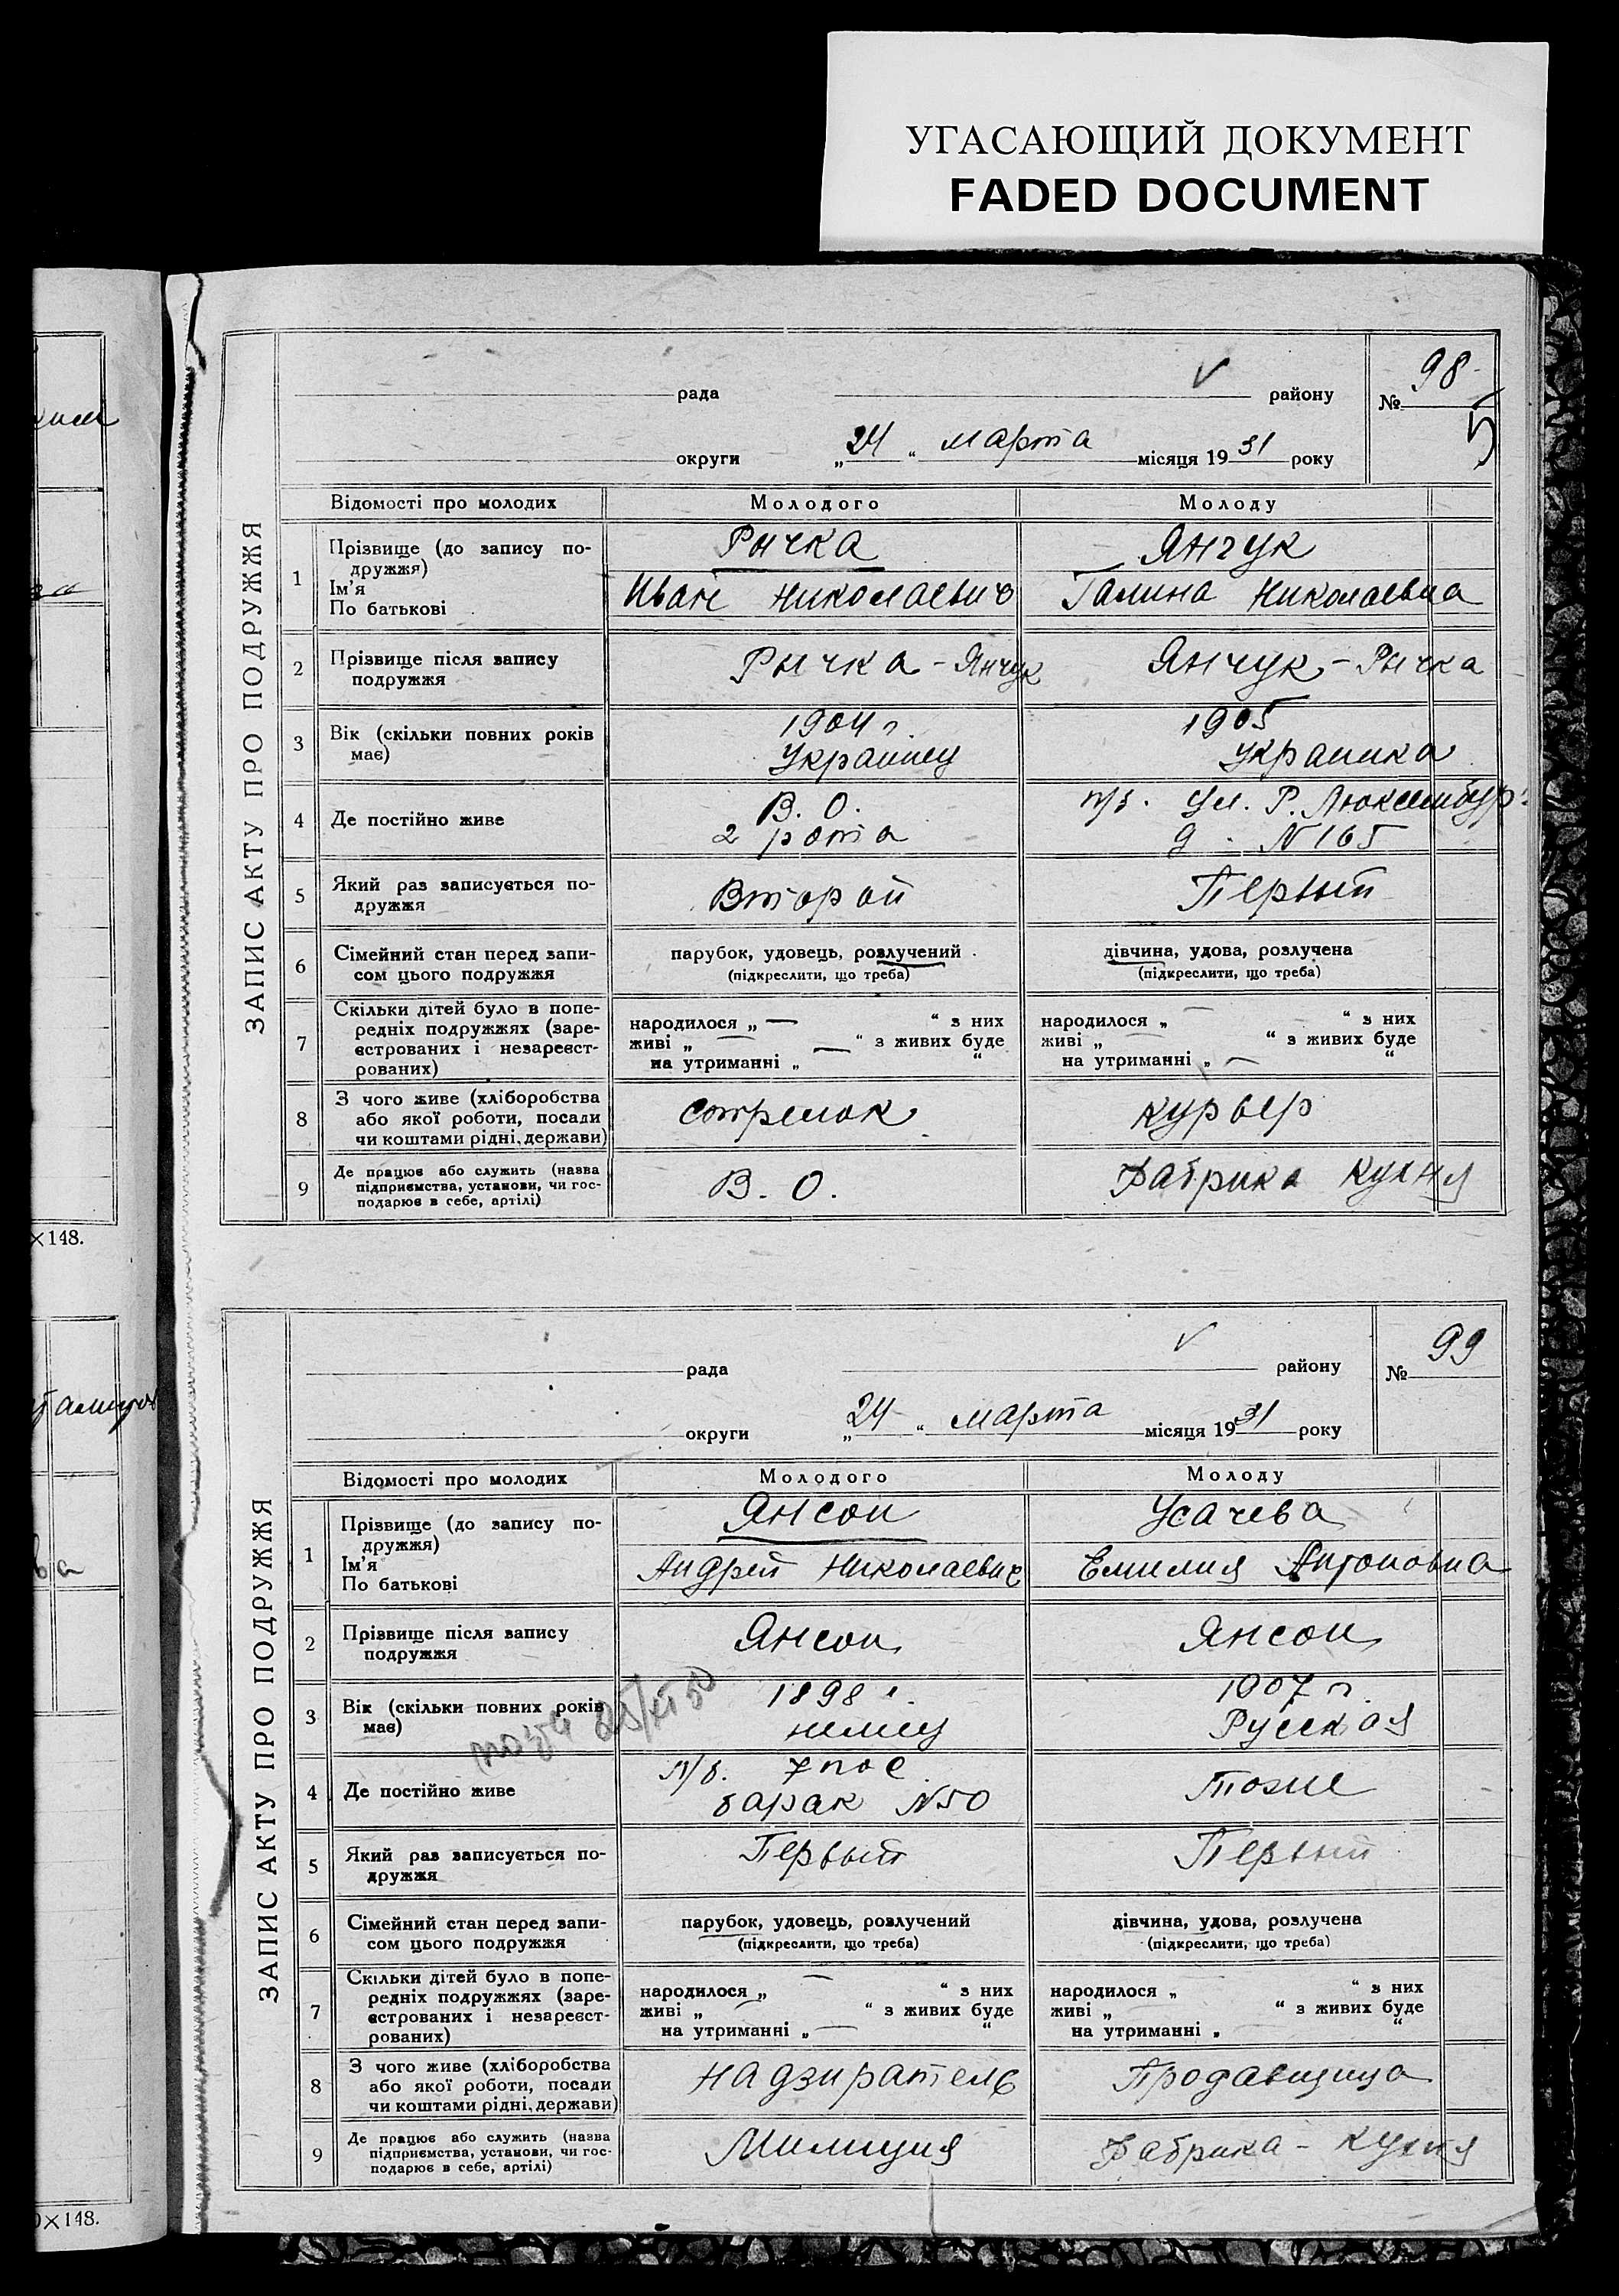 УГАСАЮЩИЙ ДОКУМЕНТ
FADED DOCUMENT
ЗАПИС АКТУ ПРО ПОДРУЖЖЯ
98
рада района № 
5
округи „24“ марта місяця 1931 року
Відомості про молодих Молодого Молоду
1 Прізвище (до запису по-
дружжя)
Ім'я
По батькові
Рычка Янчук
Иван Николаевич Галина Николаевна
2 Прізвище після запису
подружжя
Рычка - Янчук Янчук - Рычка
3 Вік (скільки повних років
має)
1904 г. 1905
Украинец Украинка
4 Де постійно живе
В. О. п/з. ул. Р. Люксембург
2 рота д. N 165
5 Який раз записується по-
дружжя
Второй Первый
6 Сімейний стан перед запи-
сом цього подружжя
парубок, удовець, розлучений дівчина, удова, розлучена
(підкреслити, що треба) (підкреслити, що треба)
7 Скільки дітей було в попе-
редніх подружжях (заре-
єстрованих і незареєст-
рованих)
народилося „ — “ з них народилося „ — “ з них
живі „ — “ з живих буде живі „ — “ з живих буде
на утриманні „ — “ на утриманні „ — “
8 З чого живе (хліборобства
або якої роботи, посади
чи коштами рідні, держави)
стрелок курьер
9 Де працює або служить (назва
підприємства, установи, чи гос-
подарює в себе, артілі)
В. О. Фабрика Кухня
×148.
ЗАПИС АКТУ ПРО ПОДРУЖЖЯ
99
рада району №
округи „24“ марта місяця 1931 року
Відомості про молодих Молодого Молоду
1 Прізвище (до запису по-
дружжя)
Ім'я
По батькові
Янсон Усачева
Андрей Николаевич Емилия Антоновна
2 Прізвище після запису
подружжя
Янсон Янсон
3 Вік (скільки повних років
має)
1898 г. 1907 г.
немец Русская
4 Де постійно живе
7 пос тоже
барак N50
5 Який раз записується по-
дружжя
Первый Первый
6 Сімейний стан перед запи-
сом цього подружжя
парубок, удовець, розлучений дівчина, удова, розлучена
(підкреслити, що треба) (підкреслити, що треба)
7 Скільки дітей було в попе-
редніх подружжях (заре-
єстрованих і незареєст-
рованих)
народилося „ — “ з них народилося „ “ з них
живі „ — “ з живих буде живі „ “ з живих буде
на утриманні „ — “ на утриманні „ “
8 З чого живе (хліборобства
або якої роботи, посади
чи коштами рідні, держави)
надзиратель Продавщица
9 Де працює або служить (назва
підприємства, установи, чи гос-
подарює в себе, артілі)
Милиция Фабрика - Кухня
×148.